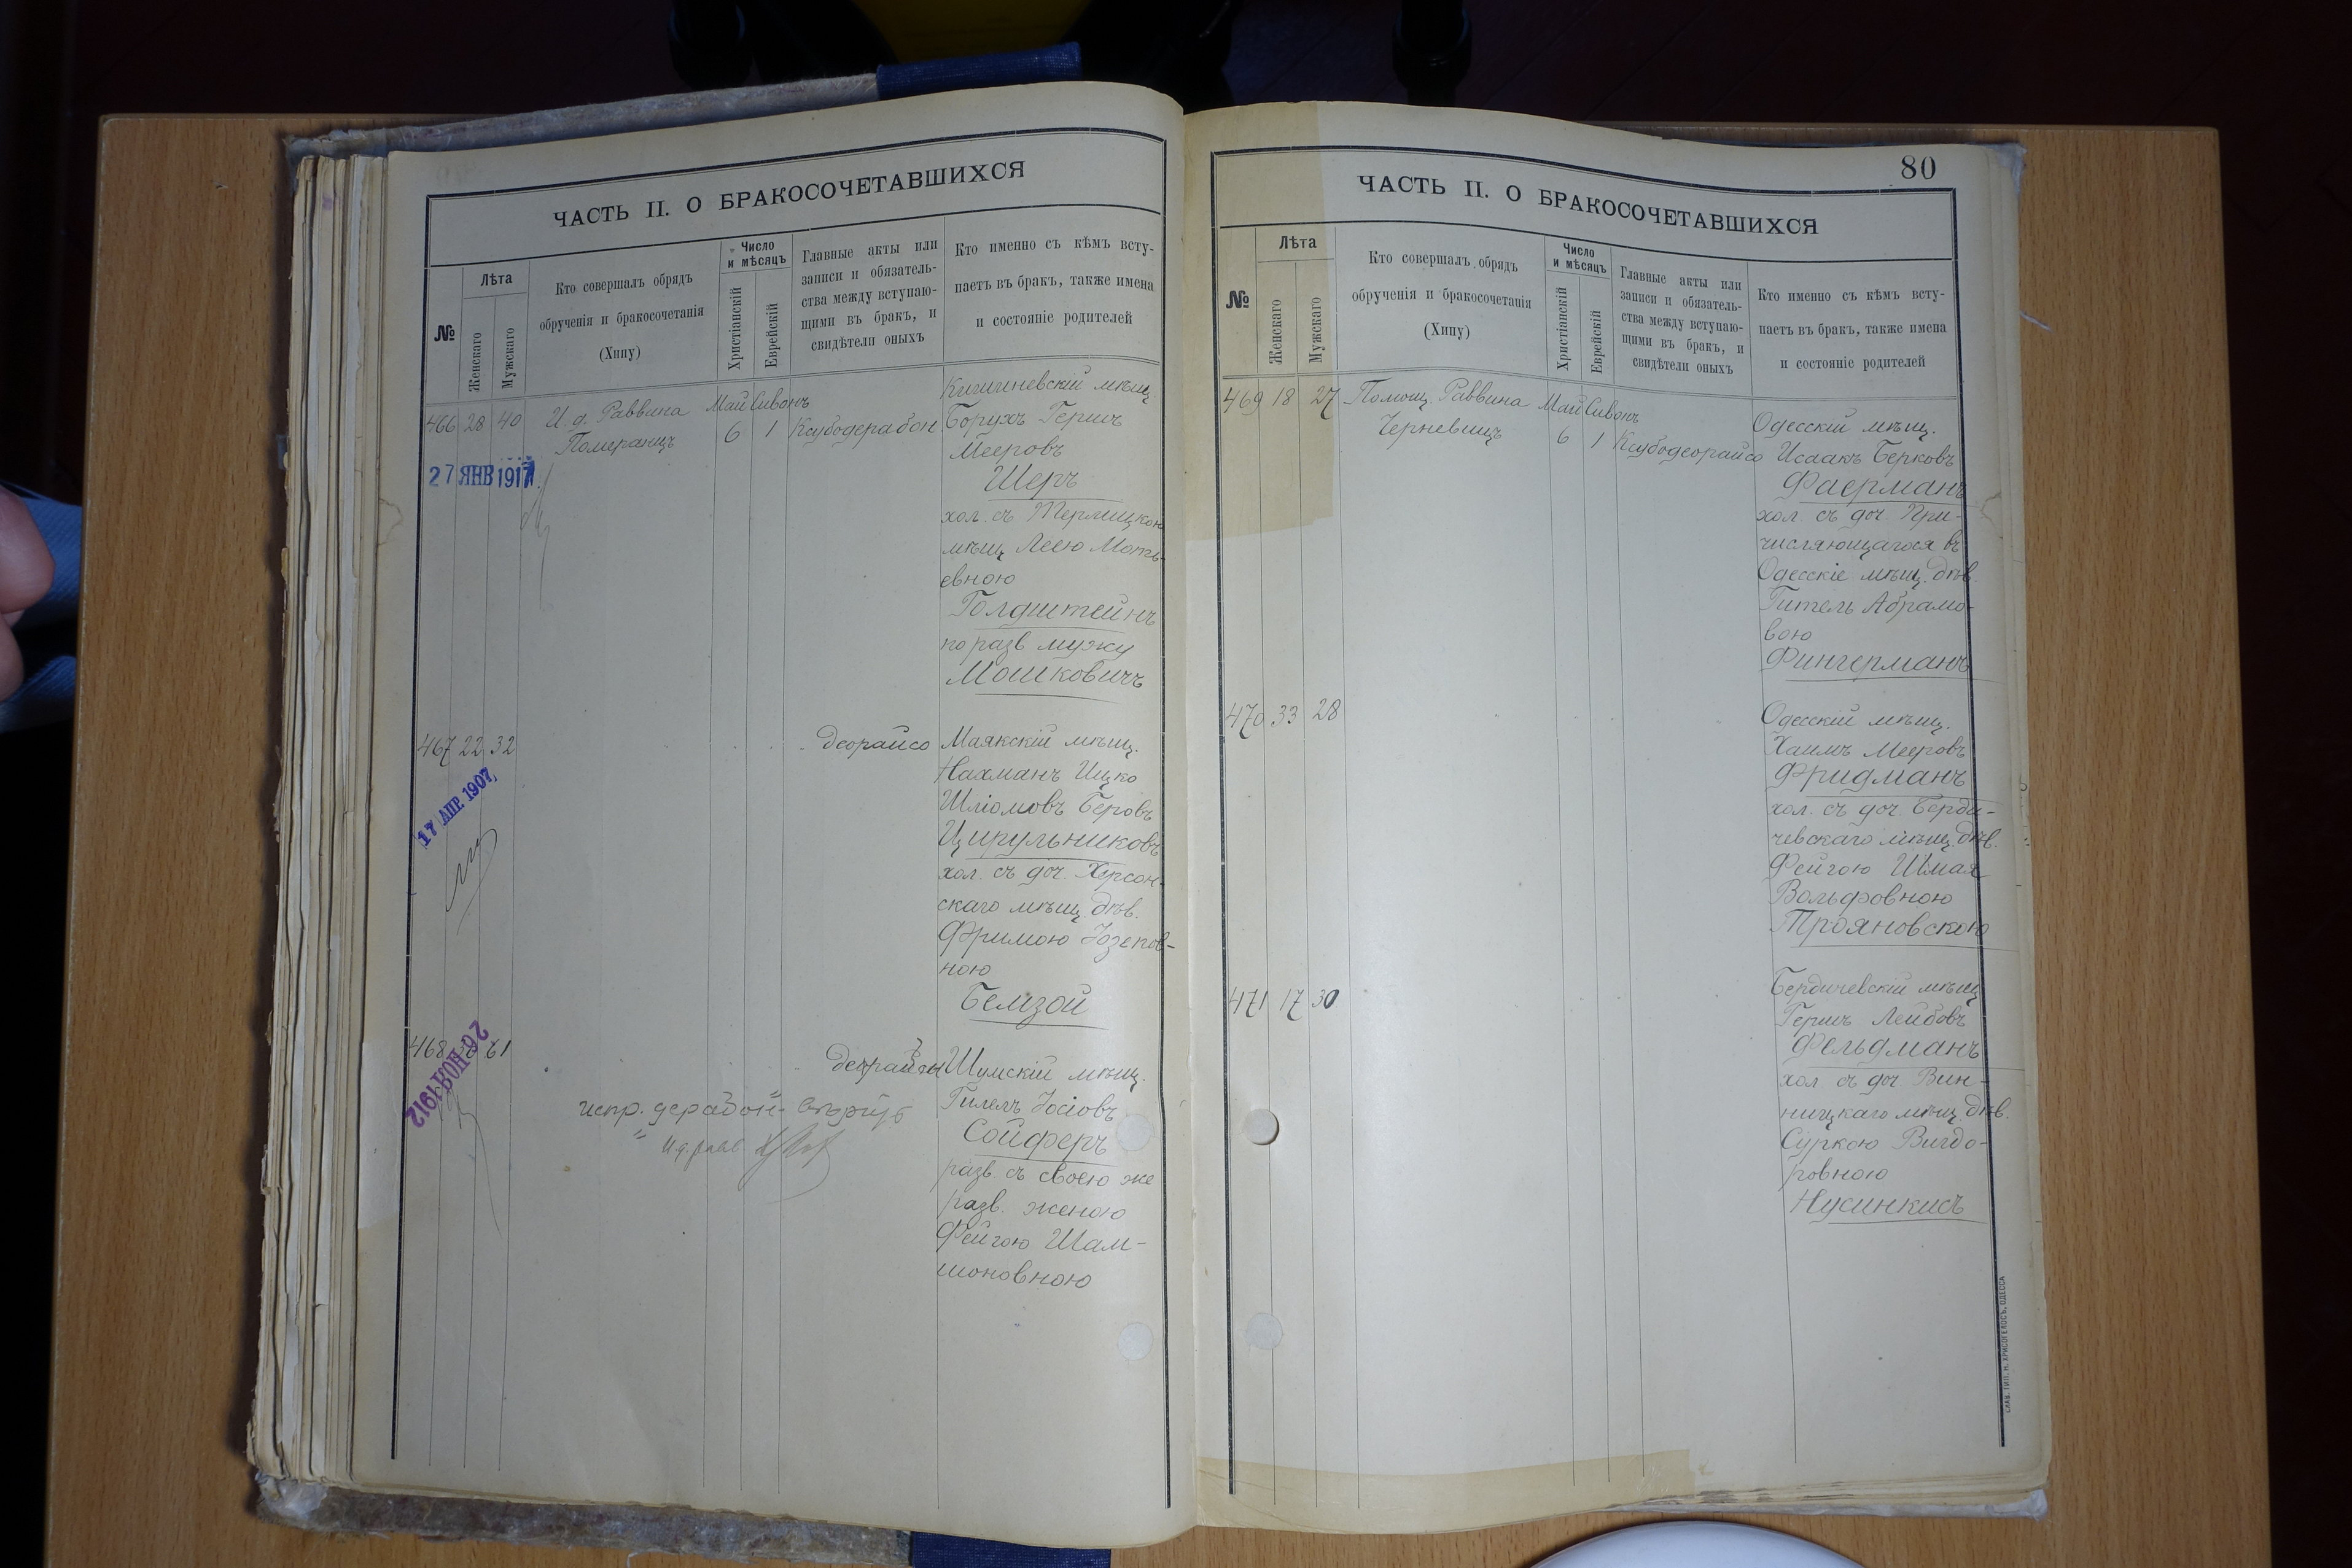 ЧАСТЬ II. О БРАКОСОЧЕТАВШИХСЯ
№
Лѣта
Женскаго
Мужскаго
Кто совершалъ обрядъ
обрученія и бракосочетанія
(Хипу)
Число
и мѣсяцъ
Христіанскій
Еврейскій
Главные акты или
записи и обязатель-
ства между вступаю-
щими въ бракъ, и
свидѣтели оныхъ
Кто именно съ кѣмъ всту-
паетъ въ бракъ, также имена
и состояніе родителей
466 28 40
И. д. Раввина
Померанцъ
Май Сивонъ
6 1
Ксубодерабон
Кишиневскій мѣщ.
Борухъ Гершъ
Мееровъ
Шеръ
хол. съ Терлицкою
мѣщ. Леею Моть-
евною
Голдштейнъ
по разв мужу
Мошковичъ
27 ЯНВ 1917
467 22 32
деорайсо
Маякскій мѣщ.
Нахманъ Ицко
Шліомовъ Беровъ
Цирульниковъ
хол. съ доч. Херсон-
скаго мѣщ. дѣв.
Фримою Іозепов-
ною
Белзой
17 АПР. 1907
468
61
Шумскій мѣщ.
Гилель Іосіовъ
Сойферъ
разв. съ своею же
разв. женою
Фейгою Шам-
шоновною
26 НОЯ 1912
испр.
80
ЧАСТЬ II. О БРАКОСОЧЕТАВШИХСЯ
№
Лѣта
Женскаго
Мужскаго
Кто совершалъ обрядъ
обрученія и бракосочетанія
(Хипу)
Число
и мѣсяцъ
Христіанскій
Еврейскій
Главные акты или
записи и обязатель-
ства между вступаю-
щими въ бракъ, и
свидѣтели оныхъ
Кто именно съ кѣмъ всту-
паетъ въ бракъ, также имена
и состояніе родителей
469 18 27
Помощ. Раввина
Черневицъ
Май Сивонъ
6 1
Ксубодеорайсо
Одесскій мѣщ.
Исаакъ Берковъ
Фаерманъ
хол. съ доч. При-
числяющагося въ
Одесскіе мѣщ. дѣв.
Гитель Абрамо-
вою
Фингерманъ
470 33 28
Одесскій мѣщ.
Хаимъ Мееровъ
Фридманъ
хол. съ доч. Берди-
чевскаго мѣщ. дѣв.
Фейгою Шмая
Вольфовною
Трояновскою
471 17 30
Бердичевскій мѣщ
Гершъ Лейбовъ
Фельдманъ
хол. съ доч. Вин-
ницкаго мѣщ. дѣв.
Суркою Вигдо-
ровною
Нусинкисъ
СЛАВ. ТИП. Н. ХРИСОГЕЛОСЪ, ОДЕССА